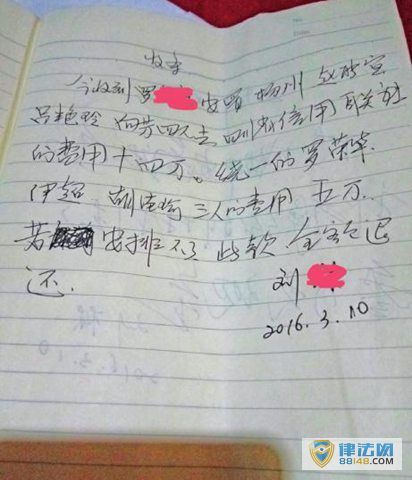 收条
今收到罗 安置 杨川 赵
吕艳玲 四人去四川省信用联社
的费用十四万。统一的罗荣华
伊超 三人的费用 五万.
若 安排不了 此款 全额退
还.
刘
2016.3.10
律法网
88148.COM